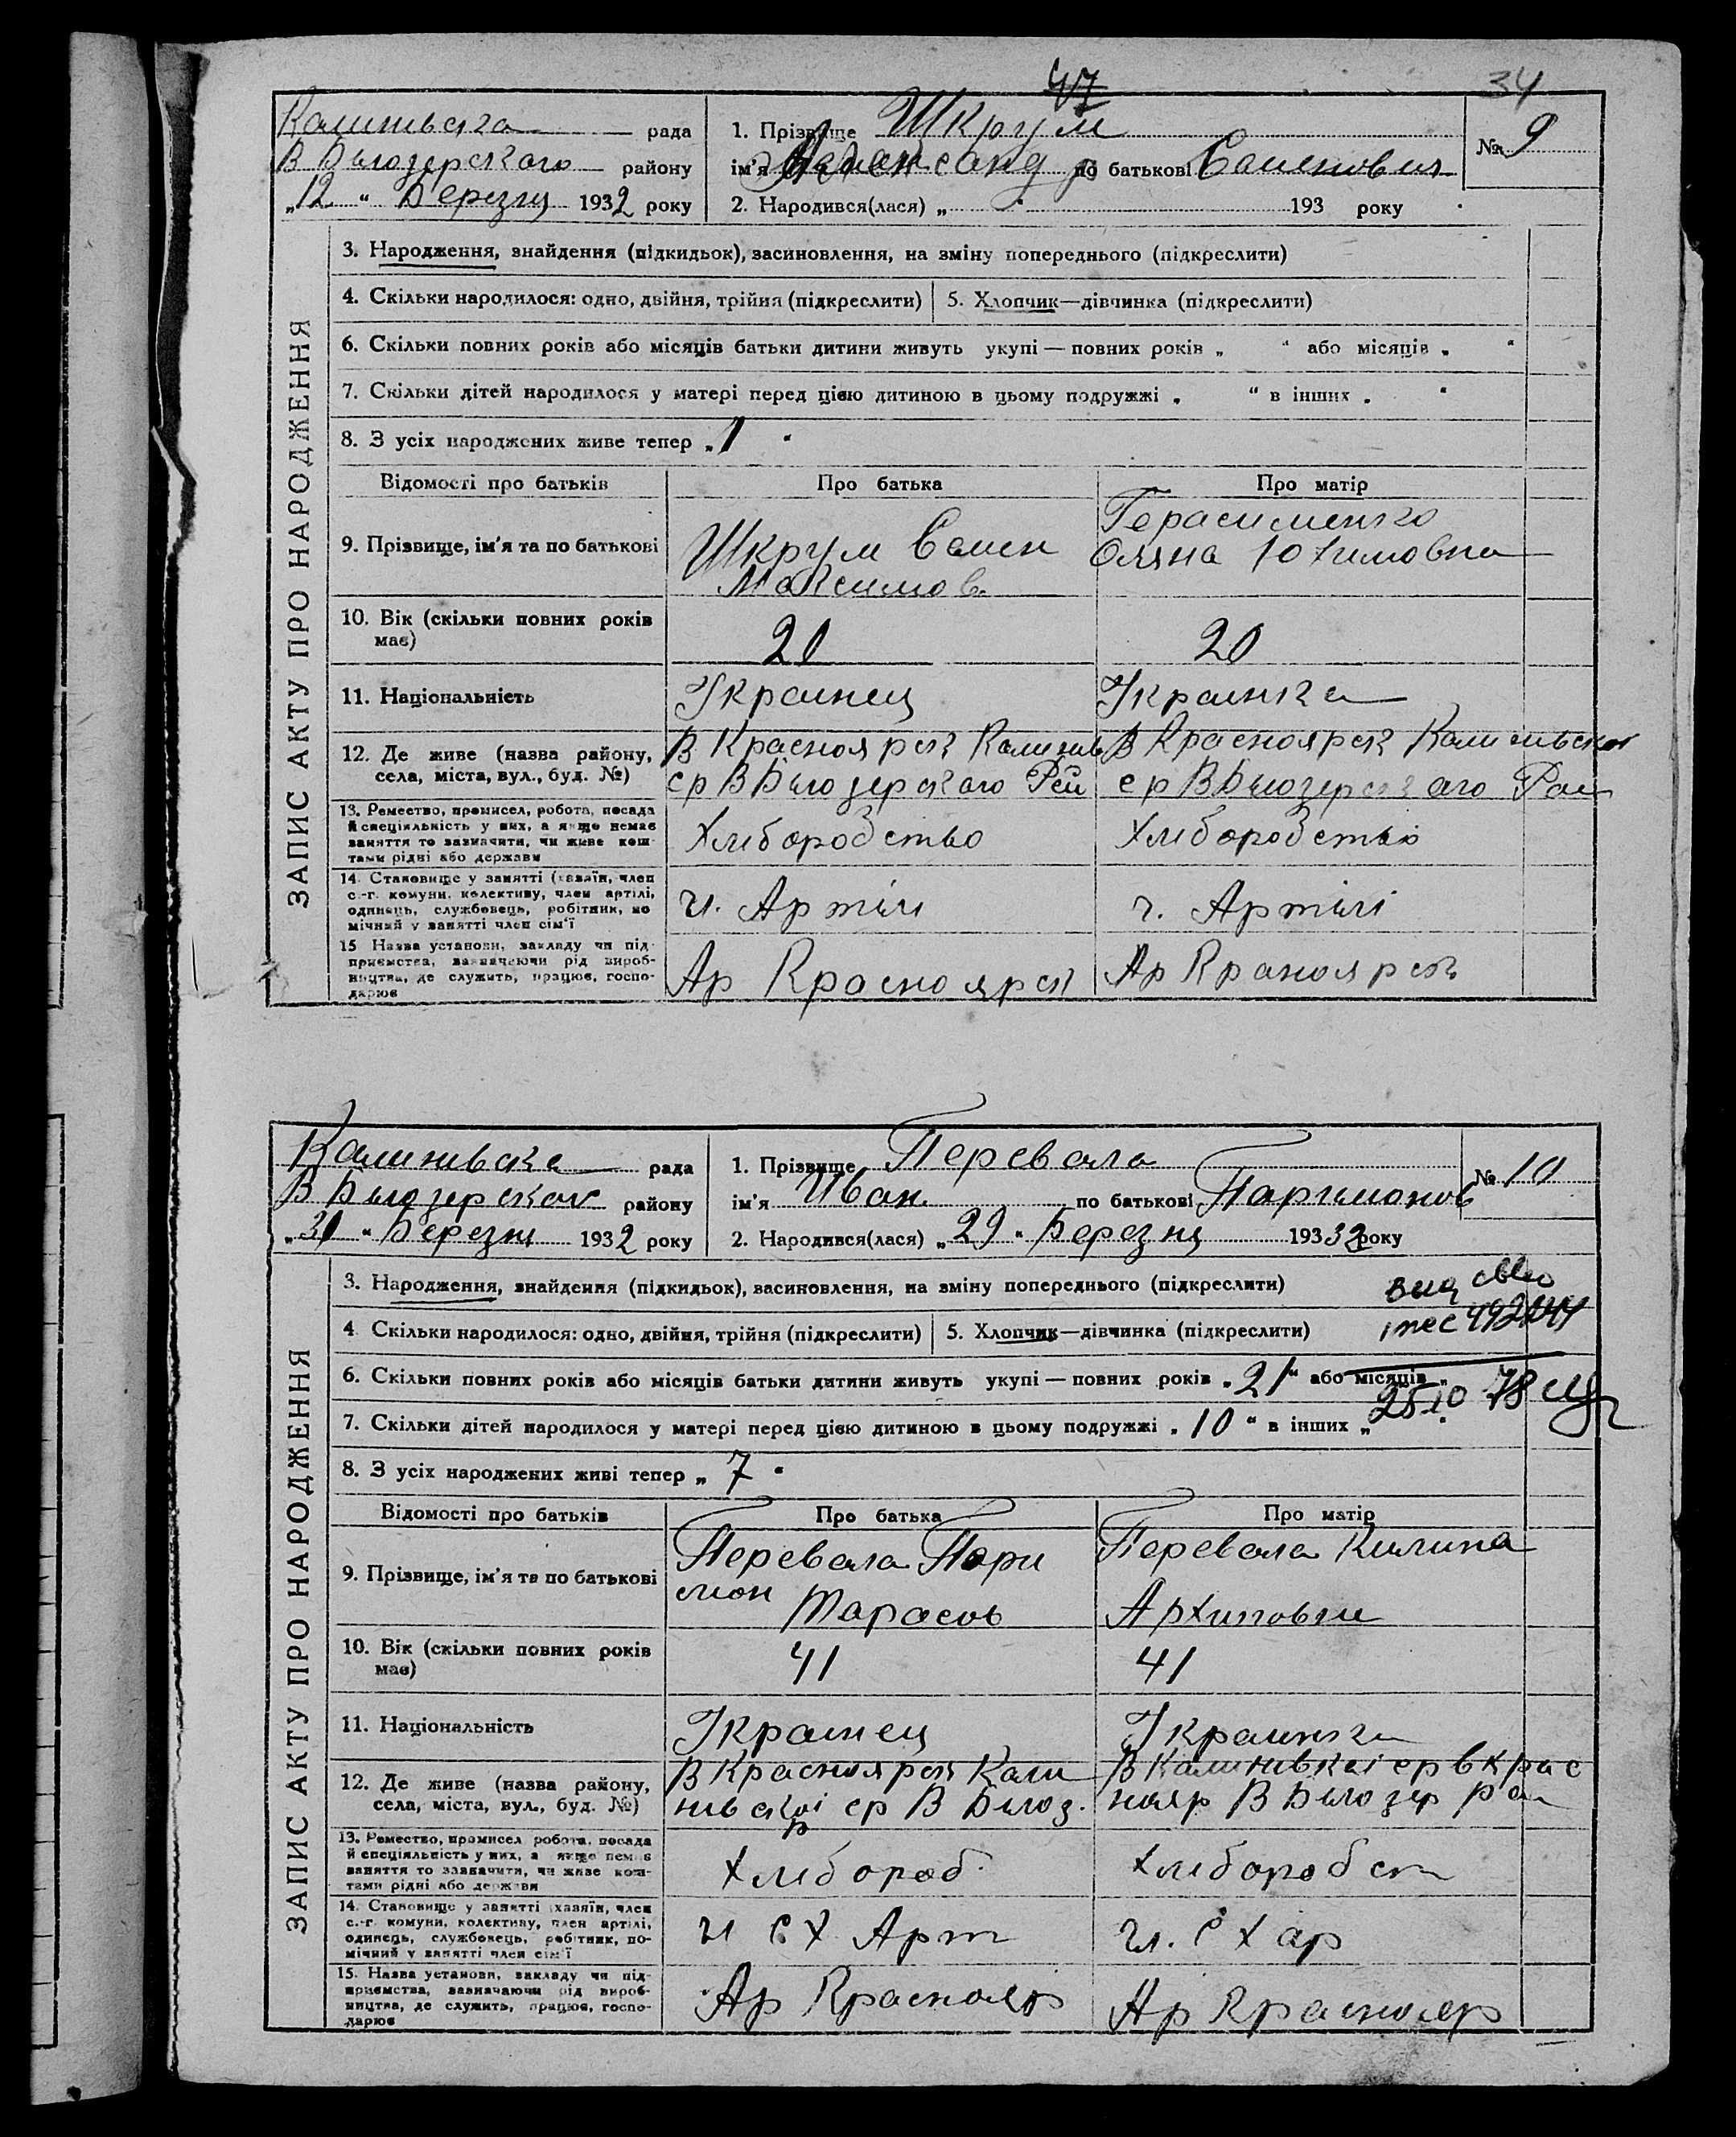 47
34
Калинівска рада
В Білозерского району
„12“ Березня 1932 року
1. Прізвище Шкрум
ім'я Александр по батькові Семенович
№ 9
2. Народився(лася) „ “ 193 року
ЗАПИС АКТУ ПРО НАРОДЖЕННЯ
3. Народження, знайдення (підкидьок), засиновлення, на зміну попереднього (підкреслити)
4. Скільки народилося: одно, двійня, трійня (підкреслити) 5. Хлопчик—дівчинка (підкреслити)
6. Скільки повних років або місяців батьки дитини живуть укупі — повних років „ “ або місяців „ “
7. Скільки дітей народилося у матері перед цією дитиною в цьому подружжі „ “ в інших „ “
8. З усіх народжених живе тепер „1“
Відомості про батьків Про батька Про матір
9. Прізвище, ім'я та по батькові
Шкрум Семен
Максимов.
Герасименко
Оляна Юхимовна
10. Вік (скільки повних років
має)
20
20
11. Національність Украинец Украинка
12. Де живе (назва району,
села, міста, вул., буд. №)
В Краснояреск Калинив
ср В Білозерского Рай
В Красноярск Калинівской
ср В Білозерского Рай
13. Ремество, промисел, робота, посада
й спеціяльність у них, а якщо немає
заняття то зазначити, чи живе кош-
тами рідні або держави
Хліборобство
Хліборобство
14. Становище у занятті (хазяїн, член
с.-г. комуни, колективу, член артілі,
одинець, службовець, робітник, по
мічний у занятті член сім'ї
ч. Артілі
ч. Артілі
15 Назва установи, закладу чи під-
приємства, зазначаючи рід вироб-
ництва, де служить, працює, госпо-
дарює
Ар Красноярск
Ар Краноярск
Калинивска рада
В Білозерского району
„30“ Березня 1932 року
1. Прізвище Перевала
ім'я Иван по батькові Паримонов
№ 10
2. Народився(лася) „29“ Березня 19332 року
ЗАПИС АКТУ ПРО НАРОДЖЕННЯ
3. Народження, знайдення (підкидьок), засиновлення, на зміну попереднього (підкреслити)
4. Скільки народилося: одно, двійня, трійня (підкреслити) 5. Хлопчик—дівчинка (підкреслити)
6. Скільки повних років або місяців батьки дитини живуть укупі — повних років „21“ або місяців „
25.10 78
7. Скільки дітей народилося у матері перед цією дитиною в цьому подружжі „10“ в інших „
8. З усіх народжених живі тепер „7“
Відомості про батьків Про батька Про матір
9. Прізвище, ім'я та по батькові
Перевала Пари
мон
Тарасов
Перевала Килина
Архиповна
10. Вік (скільки повних років
має)
41
41
11. Національність Украинец Украинка
12. Де живе (назва району,
села, міста, вул., буд. №)
В Красноярск Кали
нивскоі ср В Білоз.
р
В Калинивкоі ср в крас
нояр В Білозер Рай
13. Ремество, промисел робота, посада
й спеціяльність у них, а якщо немає
заняття то зазначити, чи живе кош-
тами рідні або держави
Хлібороб
Хлібороб ст
14. Становище у занятті (хазяїн, член
с.-г. комуни, колективу, член артілі,
одинець, службовець, робітник, по-
мічний у занятті член сім'ї
ч СХ Арт
чл. СХ ар
15. Назва установи, закладу чи під-
приємства, зазначаючи рід вироб-
ництва, де служить, працює, госпо-
дарює
Ар Краснояр
Ар Краснояр